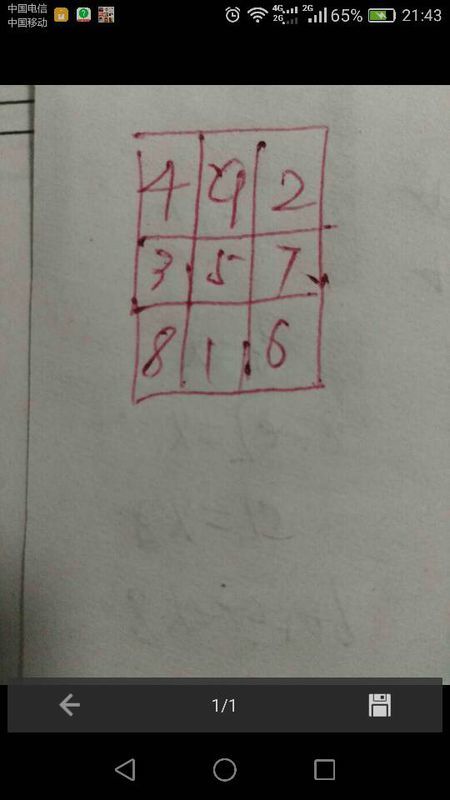 中国电信
中国移动
4G
2G
2G
65%
21:43
4 9 2
3 5 7
8 1 6
1/1